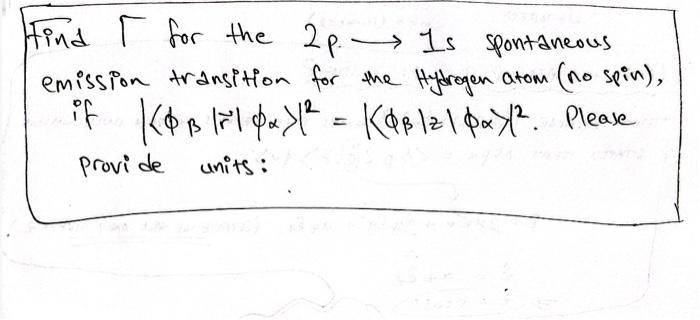 Find Γ for the 2p. → 1s spontaneous
emission transition for the Hydrogen atom (no spin),
if |<ϕβ|r⃗|ϕα>|² = |<ϕβ|z|ϕα>|². Please
provide units: